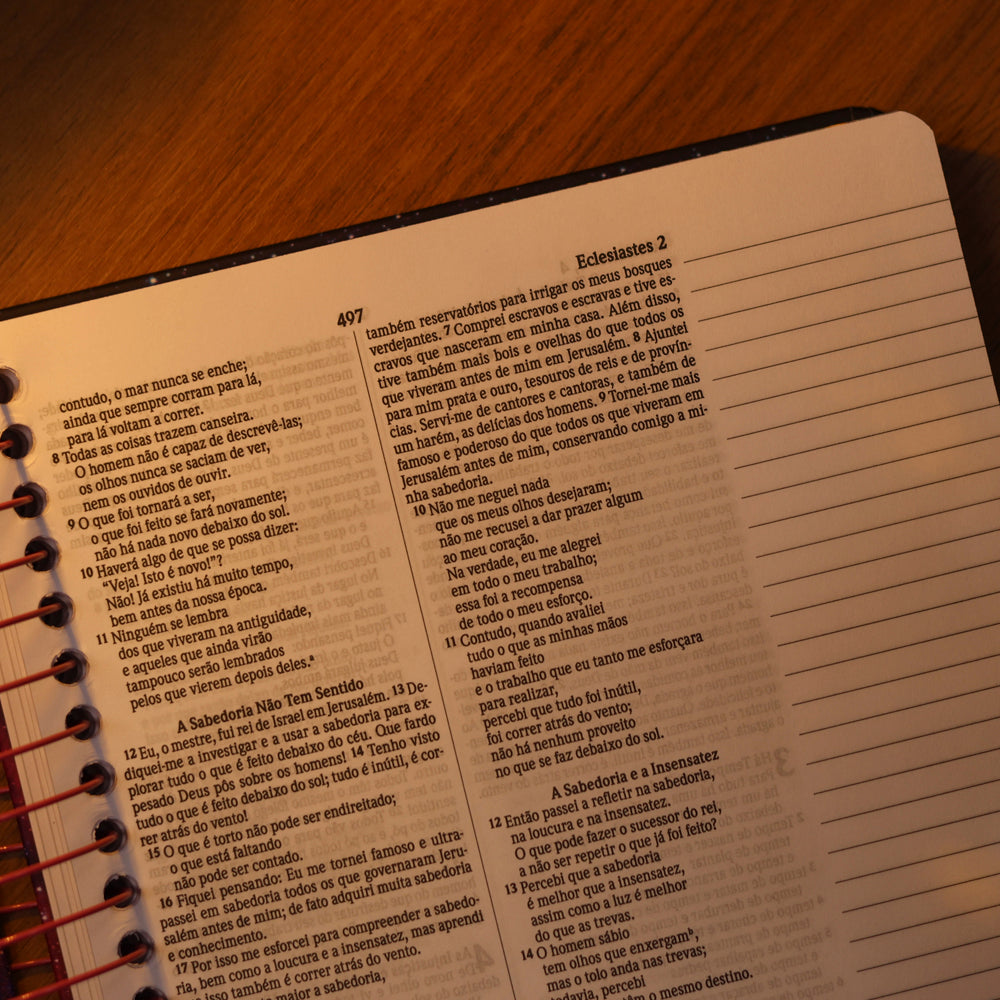 497
Eclesiastes 2
contudo, o mar nunca se enche;
ainda que sempre corram para lá,
para lá voltam a correr.
8 Todas as coisas trazem canseira.
O homem não é capaz de descrevê-las;
os olhos nunca se saciam de ver,
nem os ouvidos de ouvir.
9 O que foi tornará a ser,
o que foi feito se fará novamente;
não há nada novo debaixo do sol.
10 Haverá algo de que se possa dizer:
“Veja! Isto é novo!”?
Não! Já existiu há muito tempo,
bem antes da nossa época.
11 Ninguém se lembra
dos que viveram na antiguidade,
e aqueles que ainda virão
tampouco serão lembrados
pelos que vierem depois deles.ª
A Sabedoria Não Tem Sentido
12 Eu, o mestre, fui rei de Israel em Jerusalém. 13 De-
diquei-me a investigar e a usar a sabedoria para ex-
plorar tudo o que é feito debaixo do céu. Que fardo
pesado Deus pôs sobre os homens! 14 Tenho visto
tudo o que é feito debaixo do sol; tudo é inútil, é cor-
rer atrás do vento!
15 O que é torto não pode ser endireitado;
o que está faltando
não pode ser contado.
16 Fiquei pensando: Eu me tornei famoso e ultra-
passei em sabedoria todos os que governaram Jeru-
salém antes de mim; de fato adquiri muita sabedoria
e conhecimento.
17 Por isso me esforcei para compreender a sabedo-
ria, bem como a loucura e a insensatez, mas aprendi
isso também é correr atrás do vento.
maior a sabedoria,
também reservatórios para irrigar os meus bosques
verdejantes. 7 Comprei escravos e escravas e tive es-
cravos que nasceram em minha casa. Além disso,
tive também mais bois e ovelhas do que todos os
que viveram antes de mim em Jerusalém. 8 Ajuntei
para mim prata e ouro, tesouros de reis e de provín-
cias. Servi-me de cantores e cantoras, e também de
um harém, as delícias dos homens. 9 Tornei-me mais
famoso e poderoso do que todos os que viveram em
Jerusalém antes de mim, conservando comigo a mi-
nha sabedoria.
10 Não me neguei nada
que os meus olhos desejaram;
não me recusei a dar prazer algum
ao meu coração.
Na verdade, eu me alegrei
em todo o meu trabalho;
essa foi a recompensa
de todo o meu esforço.
11 Contudo, quando avaliei
tudo o que as minhas mãos
haviam feito
e o trabalho que eu tanto me esforçara
para realizar,
percebi que tudo foi inútil,
foi correr atrás do vento;
não há nenhum proveito
no que se faz debaixo do sol.
A Sabedoria e a Insensatez
12 Então passei a refletir na sabedoria,
na loucura e na insensatez.
O que pode fazer o sucessor do rei,
a não ser repetir o que já foi feito?
13 Percebi que a sabedoria
é melhor que a insensatez,
assim como a luz é melhor
do que as trevas.
14 O homem sábio
tem olhos que enxergamᵇ,
mas o tolo anda nas trevas;
todavia, percebi
o mesmo destino.